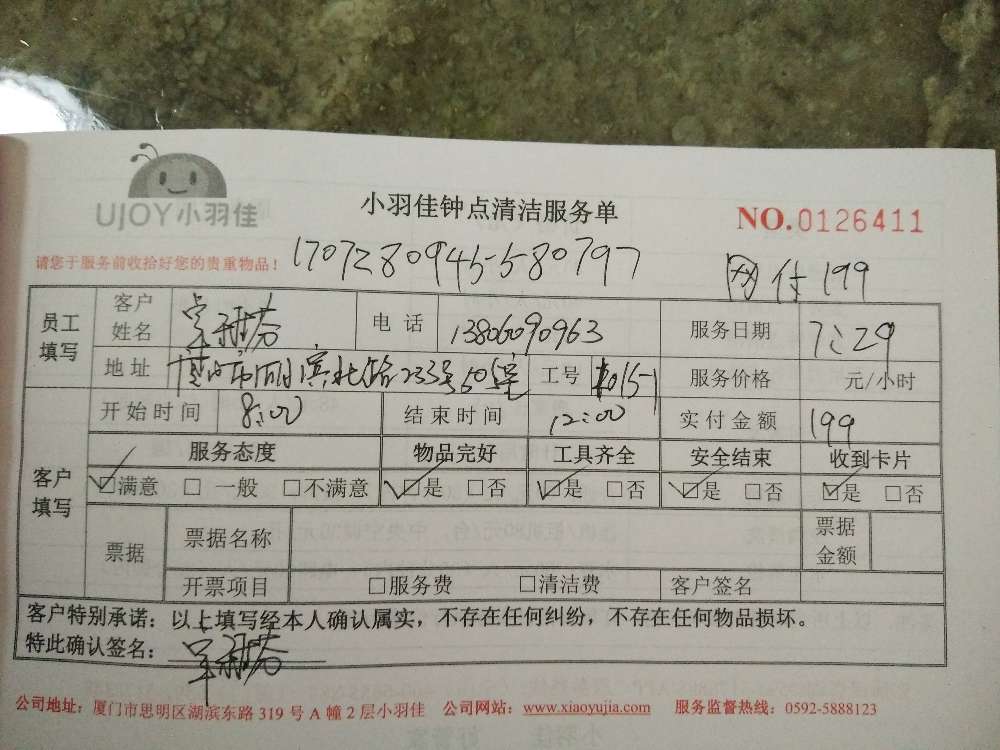 UJOY小羽佳
小羽佳钟点清洁服务单
NO.0126411
请您于服务前收拾好您的贵重物品！
1707280945580797
网付 199
员工填写 客户姓名 电话 13806090963 服务日期 7:29
地址 路233号505室 工号 服务价格 元/小时
开始时间 8:00 结束时间 12:00 实付金额 199
客户填写 服务态度 物品完好 工具齐全 安全结束 收到卡片
☑满意 □一般 □不满意 ☑是 □否 ☑是 □否 ☑是 □否 ☑是 □否
票据 票据名称 票据金额
开票项目 □服务费 □清洁费 客户签名
客户特别承诺：以上填写经本人确认属实，不存在任何纠纷，不存在任何物品损坏。
特此确认签名：
公司地址：厦门市思明区湖滨东路 319 号 A 幢 2 层小羽佳 公司网站：www.xiaoyujia.com 服务监督热线：0592-5888123